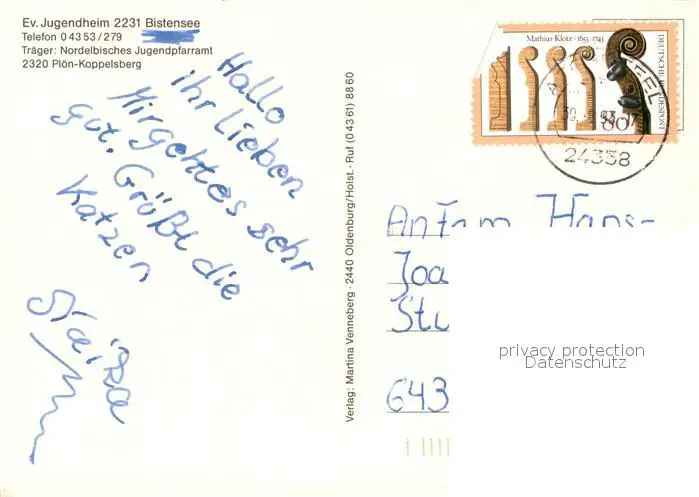 Ev. Jugendheim 2231 Bistensee
Telefon 0 43 53 / 279
Träger: Nordelbisches Jugendpfarramt
2320 Plön-Koppelsberg
Hallo
ihr lieben
Mir geht es sehr
gut. Grüßt die
Katzen
Verlag: Martina Venneberg · 2440 Oldenburg/Holst. · Ruf (0 43 61) 88 60
Mathias Klotz · 1653-1743
DEUTSCHE BUNDESPOST
80
24358
An Fam. Hans-
Joa
643
privacy protection
Datenschutz